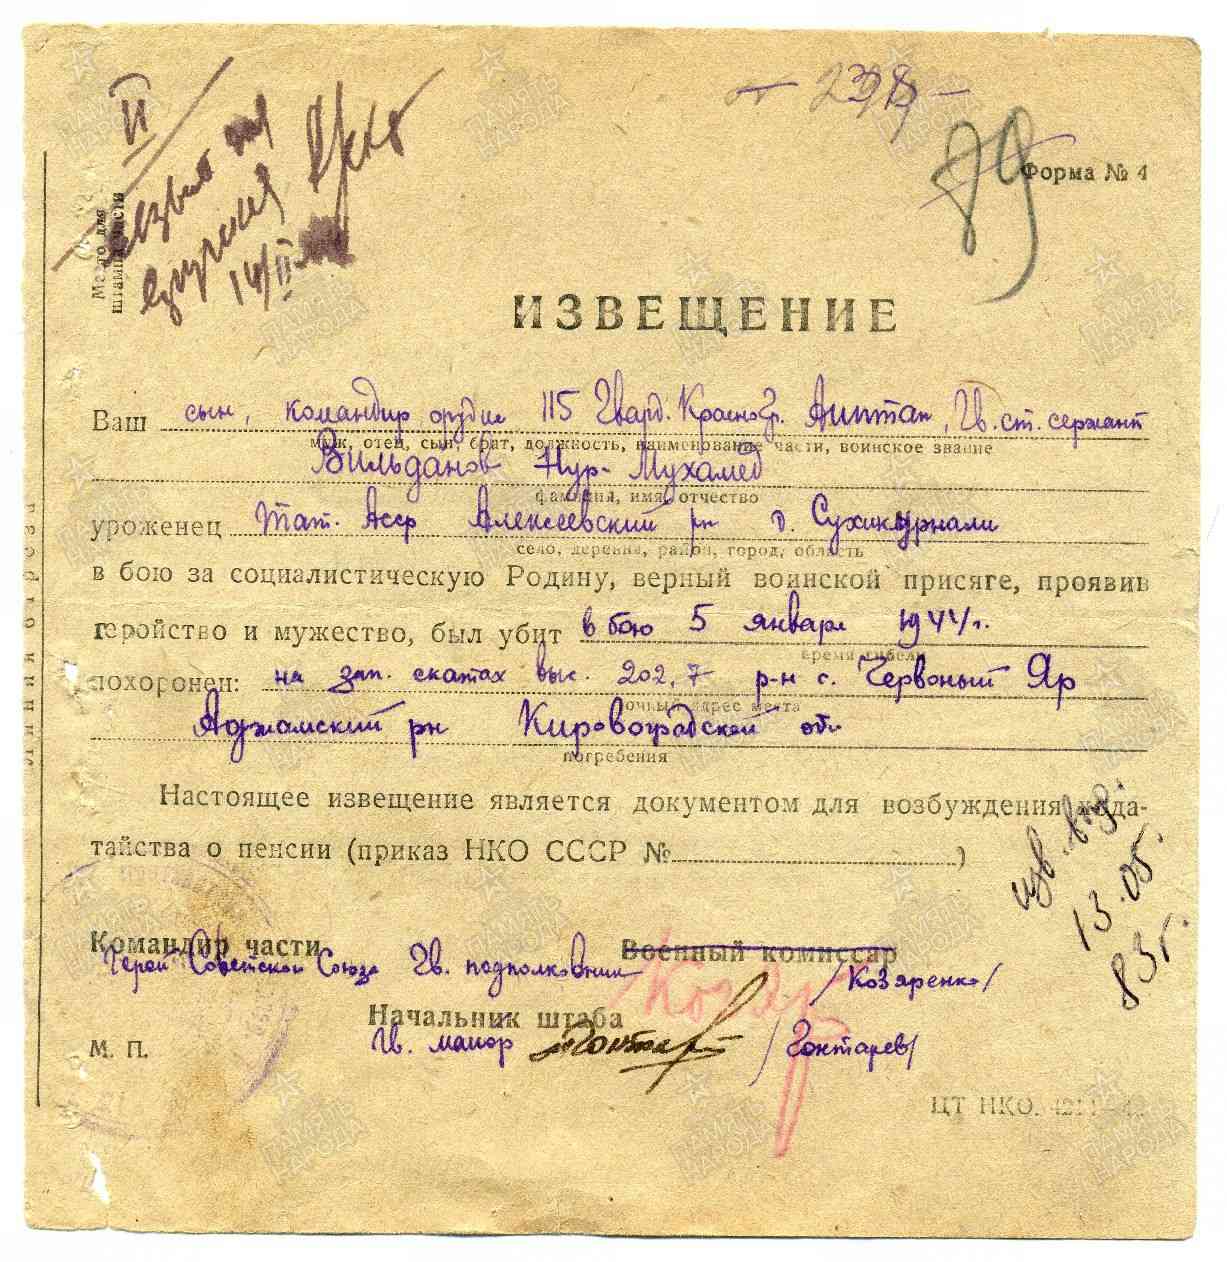 II
14/II
238
79
Форма № 4
Место для
штампа части
ИЗВЕЩЕНИЕ
Ваш сын, командир орудия 115 Гвард. Красногр. Аиптап, Гв. ст. сержант
муж, отец, сын, брат, должность, наименование части, воинское звание
Вильданов Нур-Мухамед
фамилия, имя, отчество
уроженец Тат. Асср Алексеевский рн д. Сухикурнали
село, деревня, район, город, область
в бою за социалистическую Родину, верный воинской присяге, проявив
геройство и мужество, был убит в бою 5 января 1944 г.
время гибели
похоронен: на зап. скатах выс. 202,7 р-н с. Червоный Яр
точный адрес места
Аджамский рн Кировоградской обл
погребения
Настоящее извещение является документом для возбуждения хода-
тайства о пенсии (приказ НКО СССР № )
изв. выд.
13.05.
83г.
Командир части
Военный комиссар
Герой Советского Союза Гв. подполковник /Козяренко/
Начальник штаба
Гв. майор /Гонтарев/
М. П.
ЦТ НКО.
Линия отреза
ПАМЯТЬ НАРОДА